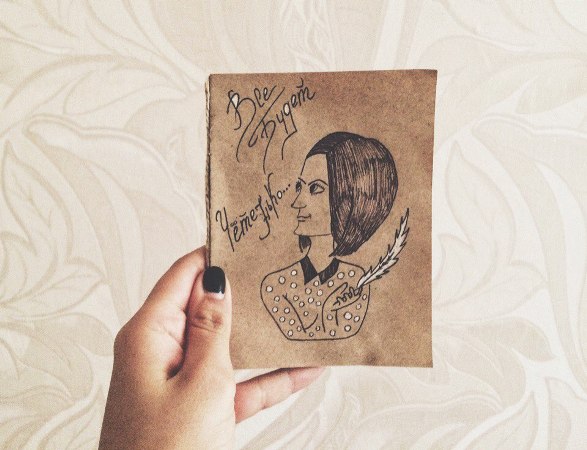 Все
Будет
Чёте-нько...